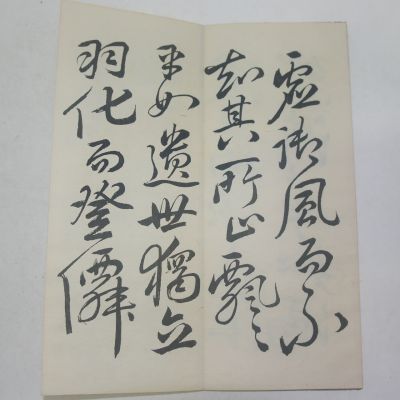 虚御風而不
知其所止飄〻
乎如遺世獨立
羽化而登僊